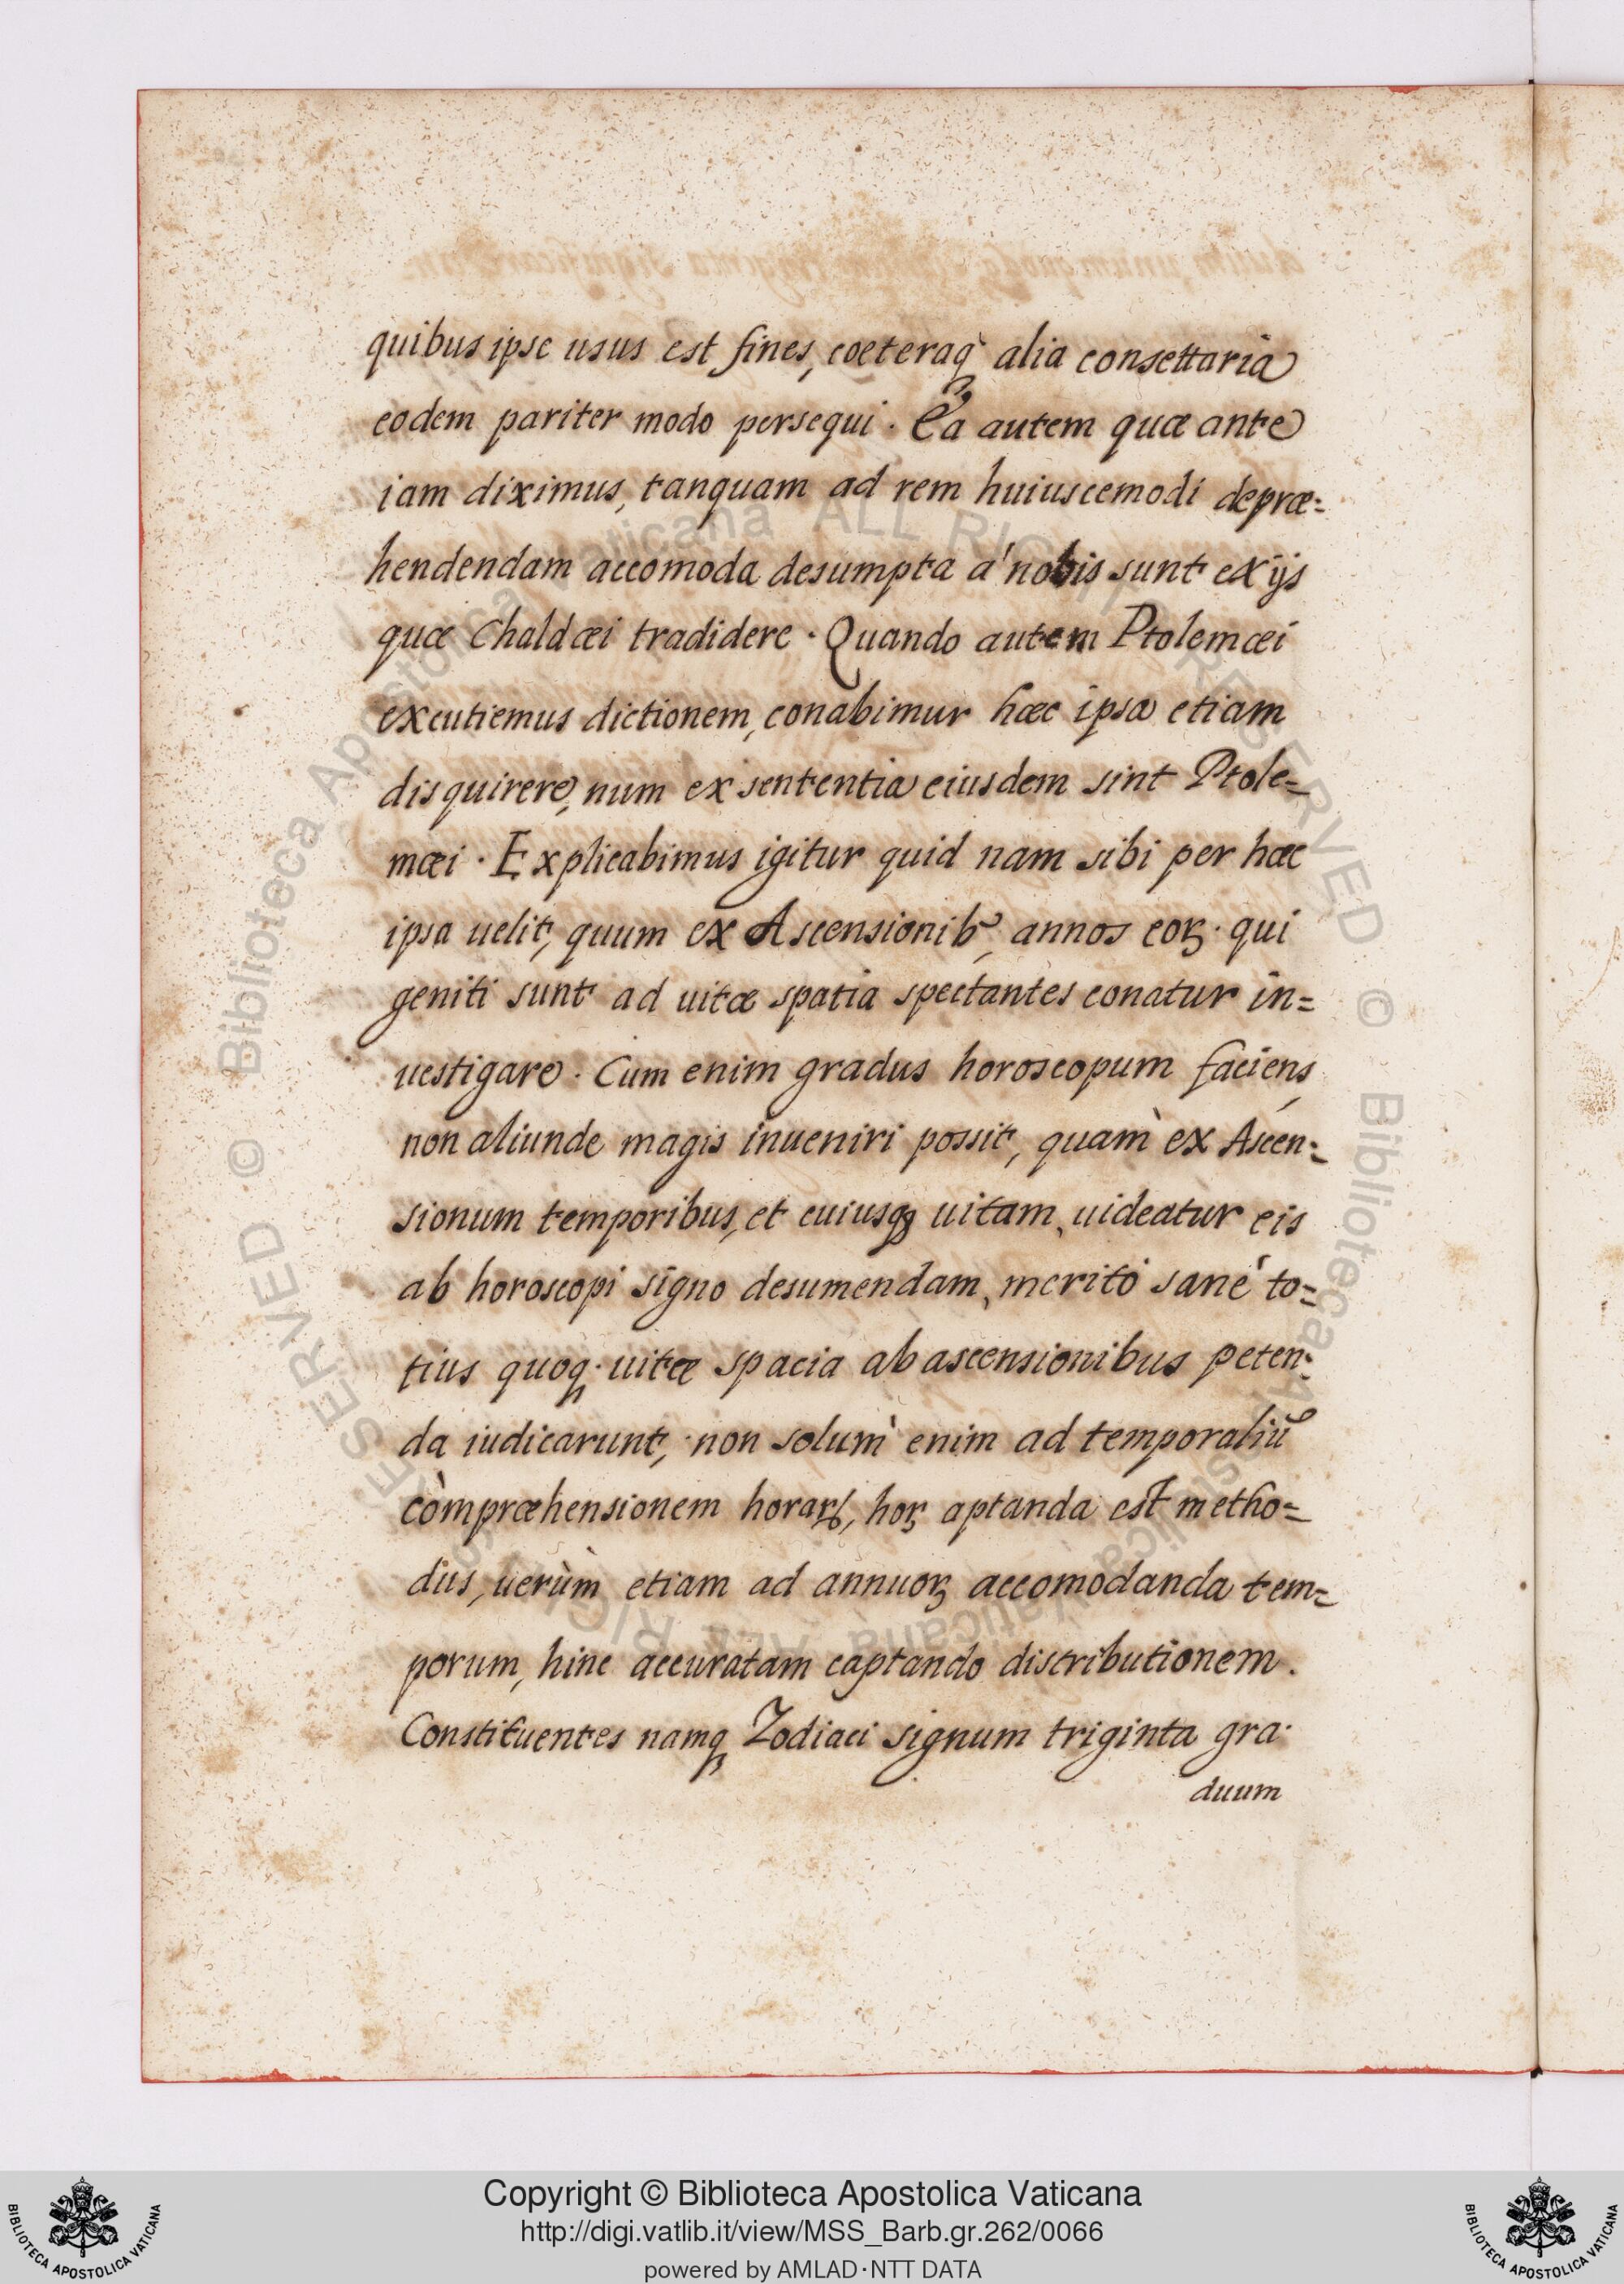 quibus ipse usus est fines, coeteraq̀ alia consettaria
eodem pariter modo persequi. Ea autem quæ ante
iam diximus, tanquam ad rem huiuscemodi depræ=
hendendam accomoda desumpta à nobis sunt ex ijs
quæ Chaldæi tradidere. Quando autem Ptolemæi
excutiemus dictionem, conabimur hæc ipsa etiam
disquirere, num ex sententia eiusdem sint Ptole=
mæi. Explicabimus igitur quid nam sibi per hæc
ipsa uelit, quum ex Ascensionibꝰ, annos eoꝝ. qui
geniti sunt ad uitæ spatia spectantes conatur in=
uestigare. Cum enim gradus horoscopum faciens,
non aliunde magis inueniri possit, quam̀ ex Ascen=
sionum temporibus, et cuiusqꝫ uitam, uideatur eis
ab horoscopi signo desumendam, meritó sané to=
tius quoq. uitæ spacia ab ascensionibus peten=
da iudicarunt, non solum̀ enim ad temporaliū
còmpræhensionem horaꝝ, hoꝝ aptanda est metho=
dus, uerùm̀ etiam ad annuoꝝ accomodanda tem=
porum, hinc accuratam captando distributionem.
Constituentes namqꝫ Zodiaci signum triginta gra-
duum
Biblioteca Apostolica Vaticana ALL RIGHTS RESERVED © Biblioteca Apostolica Vaticana ALL RIGHTS RESERVED ©
Copyright © Biblioteca Apostolica Vaticana
http://digi.vatlib.it/view/MSS_Barb.gr.262/0066
powered by AMLAD·NTT DATA
BIBLIOTECA APOSTOLICA VATICANA
BIBLIOTECA APOSTOLICA VATICANA